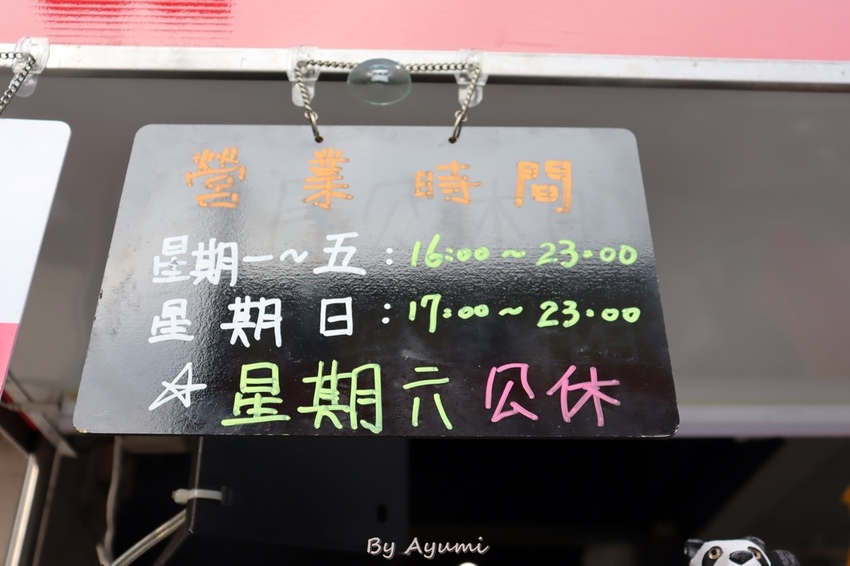 營業時間
星期一~五:16:00~23:00
星期日:17:00~23:00
☆星期六公休
By Ayumi